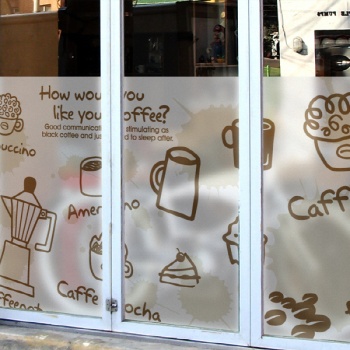 How wou you
like you offee?
Good communicat stimulating as
black coffee and jus d to sleep after.
puccino
Amer
Caff
Caffe ocha
offeepot